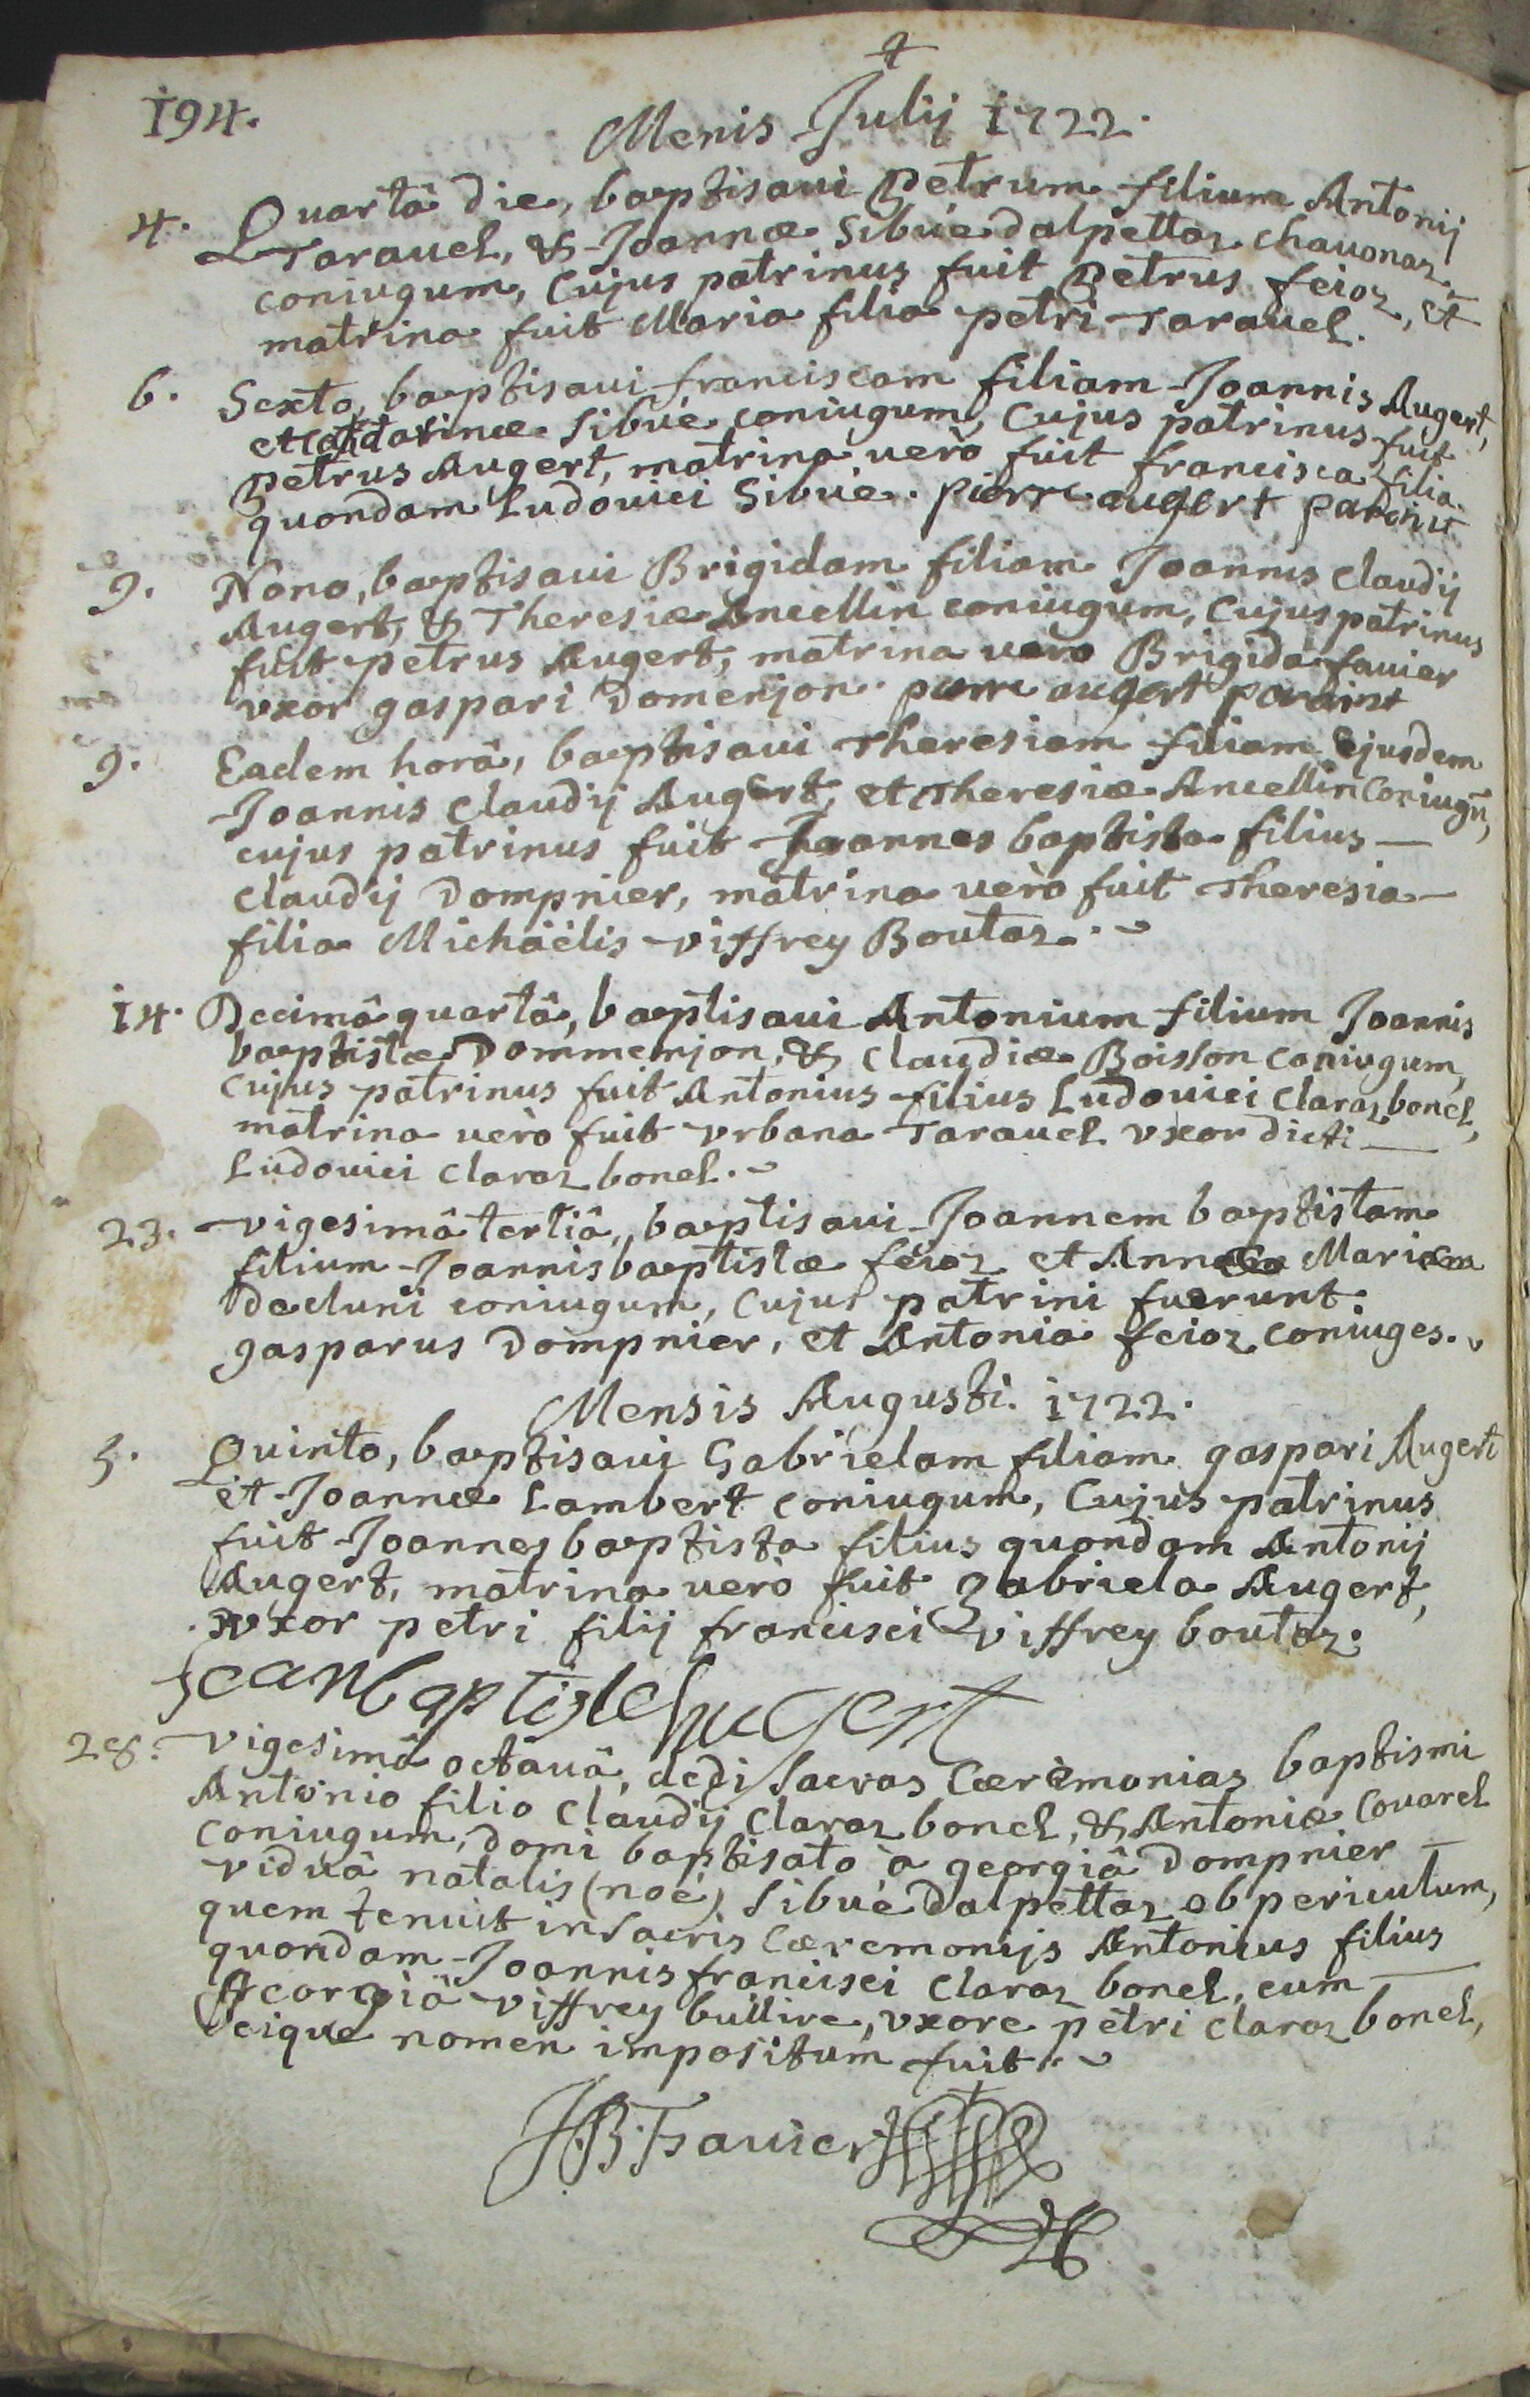 †
194.
Menis Julij 1722.
4. Quartâ die, baptisaui Petrum filium Antonij
Tarauel, & Joannæ Sibüé dalpettaz chauonaz,
coniugum, Cujus patrinus fuit Petrus feioz, et
matrina fuit Maria filia petri Tarauel.
6. Sexto, baptisaui franciscam filiam Joannis Augert,
et Catarinæ Sibüé coniugum, Cujus patrinus fuit
Petrus Augert, matrina uerò fuit francisca filia
quondam Ludouici Sibüé. pierre augert
9. Nono, baptisaui Brigidam filiam Joannis claudij
Augert, & Theresiæ Ancellin coniugum, Cujus patrinus
fuit petrus Augert, matrina uero Brigida fauier
vxor gaspari Domenjon. pierre augert
9. Eadem horâ, baptisaui Theresiam filiam Ejusdem
Joannis claudij Augert, et Theresiæ Ancellin Coniugū,
cujus patrinus fuit Joannes baptista filius
claudij Dompnier, matrina uerò fuit Theresia
filia Michäélis Viffrey Boutaz.
14. Decimâ quartâ, baptisaui Antonium filium Joannis
baptistæ Dommenjon, & claudiæ Boisson coniugum,
Cujus patrinus fuit Antonius filius Ludouici Claraz bonel,
matrina uerò fuit vrbana Tarauel vxor dicti
Ludouici claraz bonel.
23. Vigesimâ tertiâ, baptisaui Joannem baptistam
filium Joannis baptistæ feioz et Annæ Mariæ
deduni coniugum, Cujus patrini fuerunt
gasparus Dompnier, et Antonia feioz coniuges.
Mensis Augusti. 1722.
5. Quinto, baptisaui Gabrielam filiam gaspari Augert
et Joannæ Lambert coniugum, Cujus patrinus
fuit Joannes baptista filius quondam Antonij
Augert, matrina uerò fuit gabriela Augert,
vxor petri filij francisci Viffrey boutaz.
Jean baptiste Augert
28. Vigesimâ octauâ, dedi Sacras Cæremonias baptismi
Antonio filio Claudij claraz bonel, & Antoniæ Couarel
Coniugum, domi baptisato à georgiâ Dompnier
viduâ natalis (noé) Sibüé dalpettaz ob periculum,
quem tenuit in Sacris Cæremonijs Antonius filius
quondam Joannis francisci claraz bonel, cum
Georgiâ Viffrey bullire, vxore petri claraz bonel,
eique nomen impositum fuit.
JB. Fauier